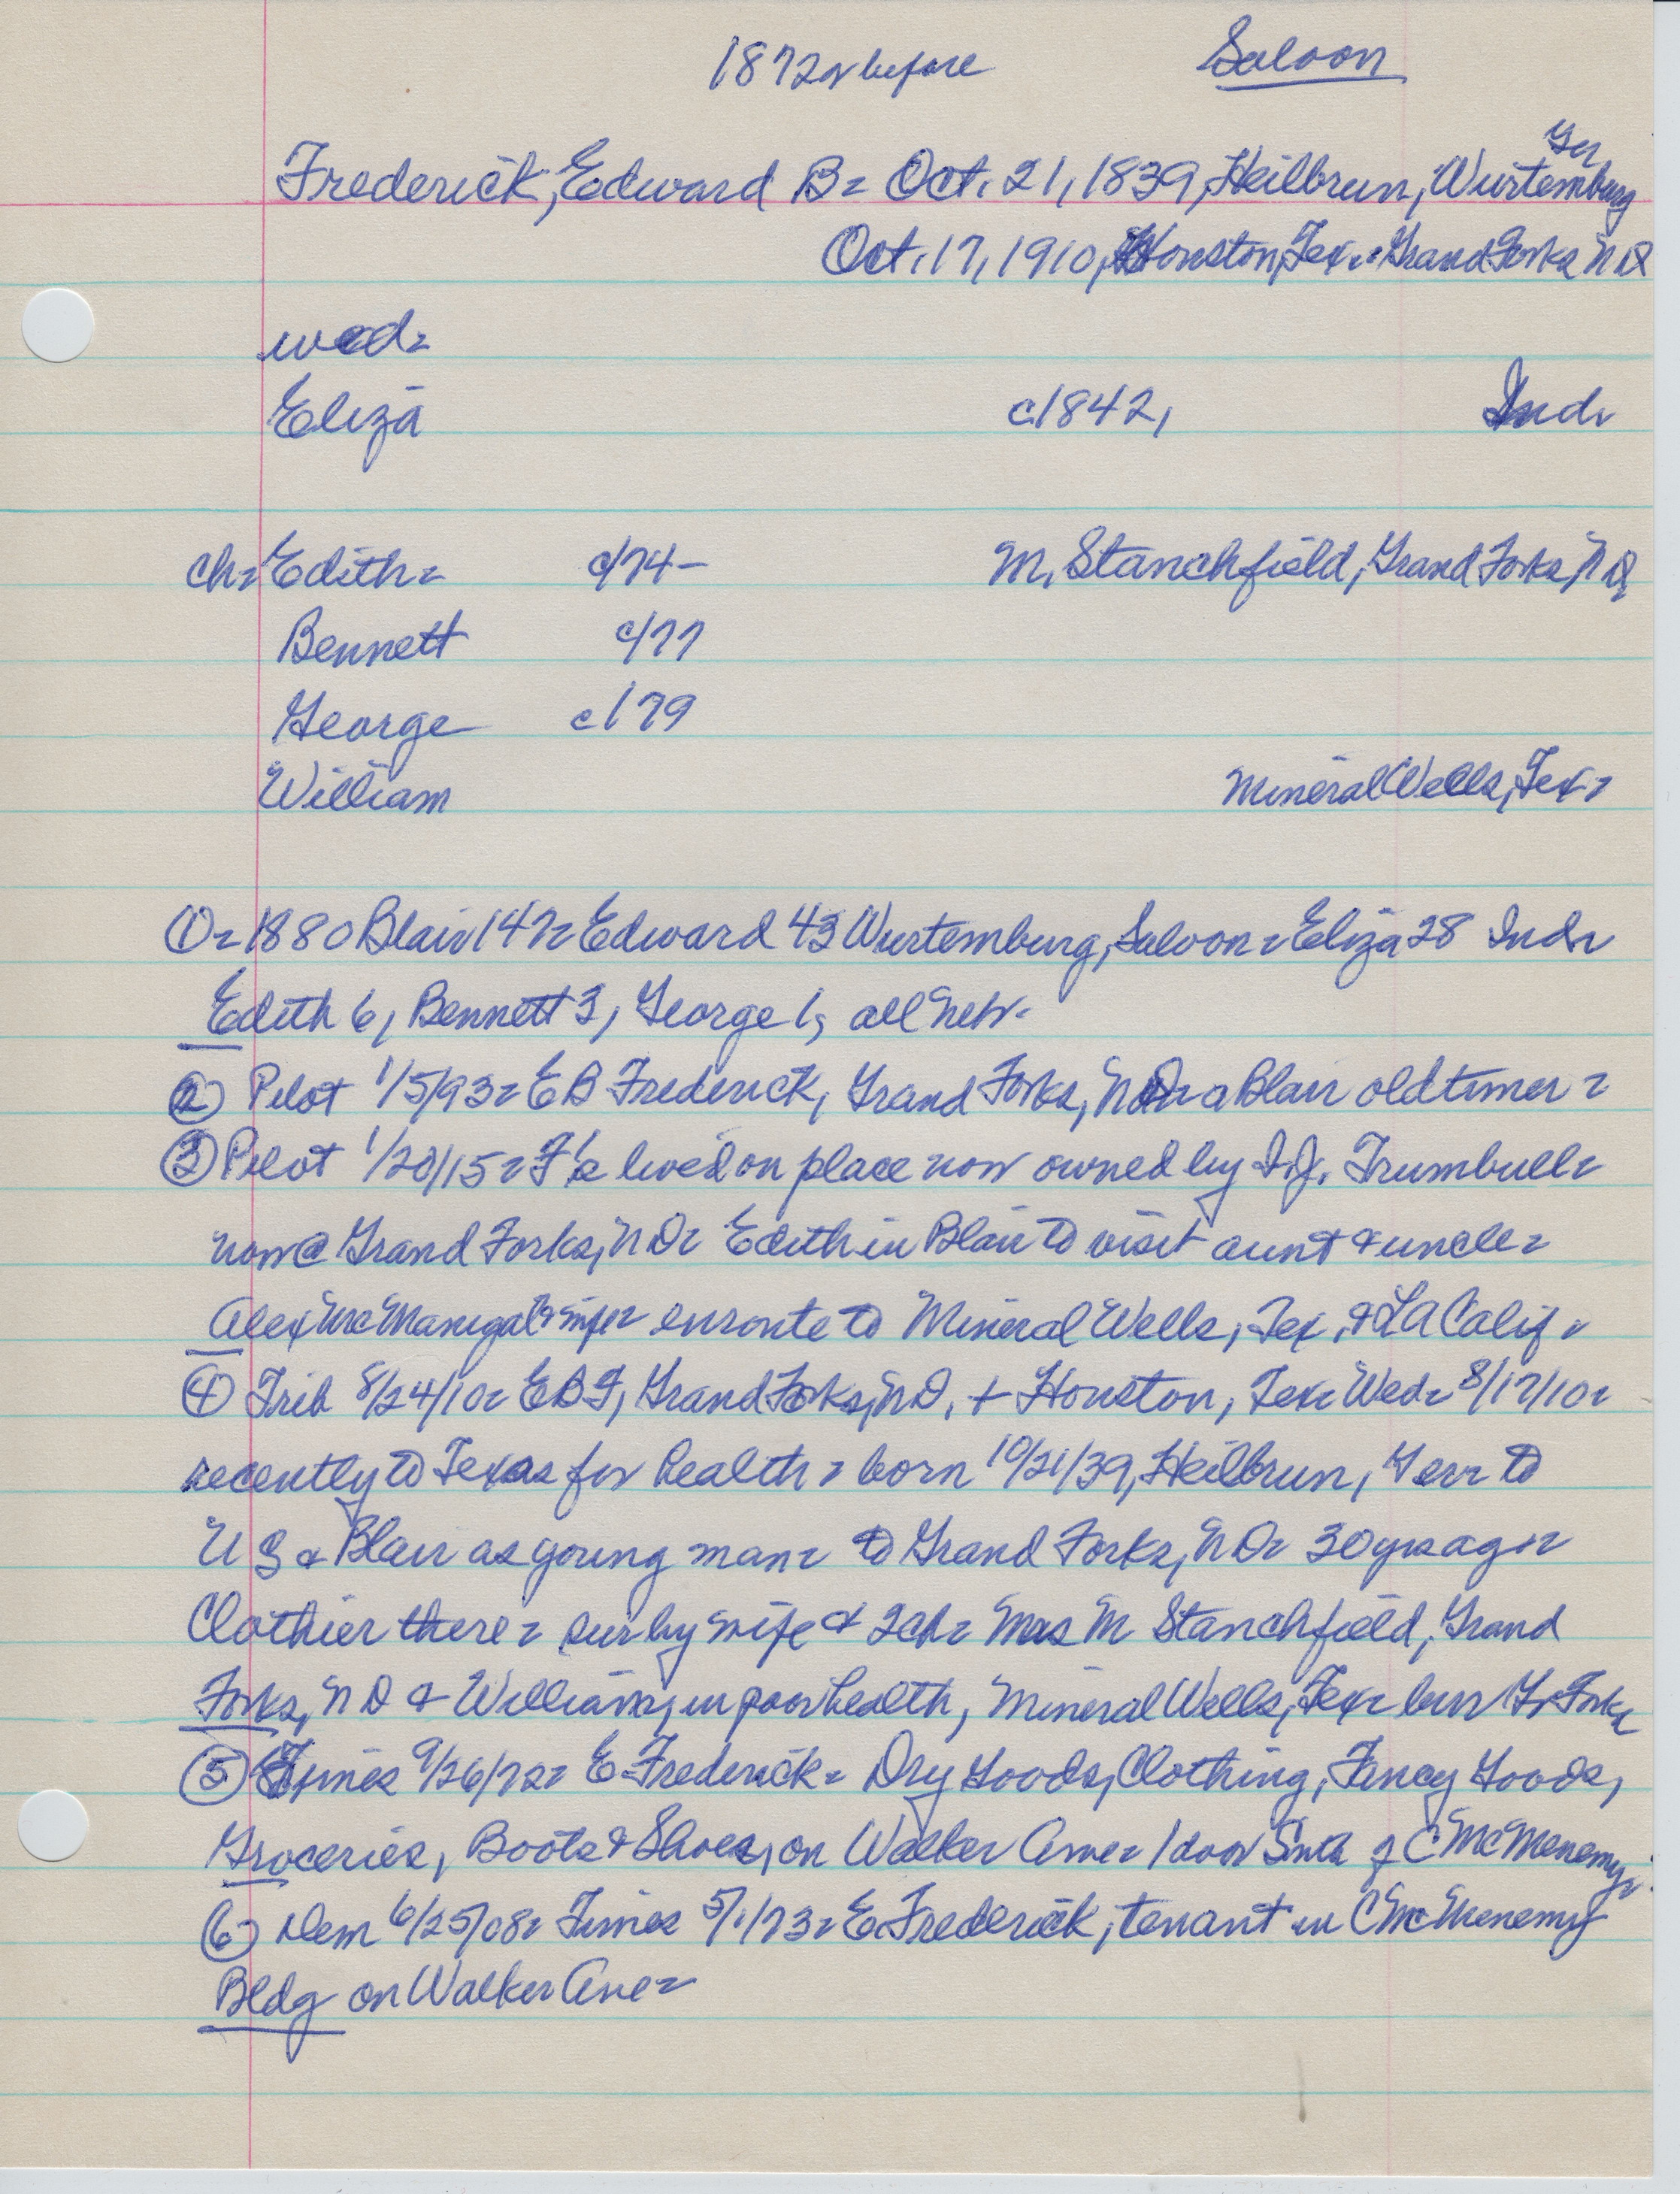 1872 or before Saloon
Ger
Frederick, Edward B= Oct. 21, 1839, Heilbrun, Wurtemburg
Oct. 17, 1910, Houston, Tex.= Grand Forks N D
wed=
Eliza c1842, Ind=
ch= Edith= c/74- M. Stanchfield, Grand Forks, N D,
Bennett c/77
George c/79
William Mineral Wells, Tex=
① = 1880 Blair 147= Edward 43 Wurtemburg, Saloon= Eliza 28 Ind=
Edith 6, Bennett 3, George 1, all Nebr.
② Pilot 1/5/93= E B Frederick, Grand Forks, N D= a Blair oldtimer=
③ Pilot 1/20/15= F's lived on place now owned by I.J. Trumbull=
now @ Grand Forks, N D= Edith in Blair to visit aunt & uncle=
Alex McManigal & wife= enroute to Mineral Wells, Tex, & LA Calif=
④ Trib 8/24/10= E B F, Grand Forks, N D, + Houston, Tex= Wed= 8/17/10=
recently to Texas for health= born 10/21/39, Heilbrun, Ger= to
U S & Blair as young man= to Grand Forks, N D= 30 yrs ago=
Clothier there= sur by wife & 2 ch= Mrs M Stanchfield, Grand
Forks, N D & William, in poor health, Mineral Wells, Tex= bur Gr Forks
⑤ Times 9/26/72= E Frederick= Dry Goods, Clothing, Fancy Goods,
Groceries, Boots & Shoes, on Walker Ave= 1 door Snth of C McMenemy=
⑥ Dem 6/25/08= Times 5/1/73= E Frederick, tenant in C McMenemy
Bldg on Walker Ave=